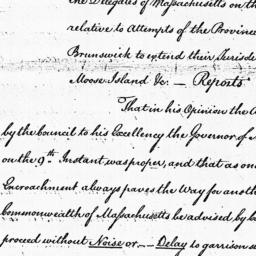 the Delegates of Massachusetts on th
relative to Attempts of the Province
Brunswick to extend their Jurisd
Moose Island &c. — Reports
That in his Opinion the a
by the Council to his Excellency the Governor of
on the 9th Instant was proper, and that as one
Encroachment always paves the Way for anoth
Commonwealth of Massachusetts be advised by
proceed without Noise or — Delay to garrison